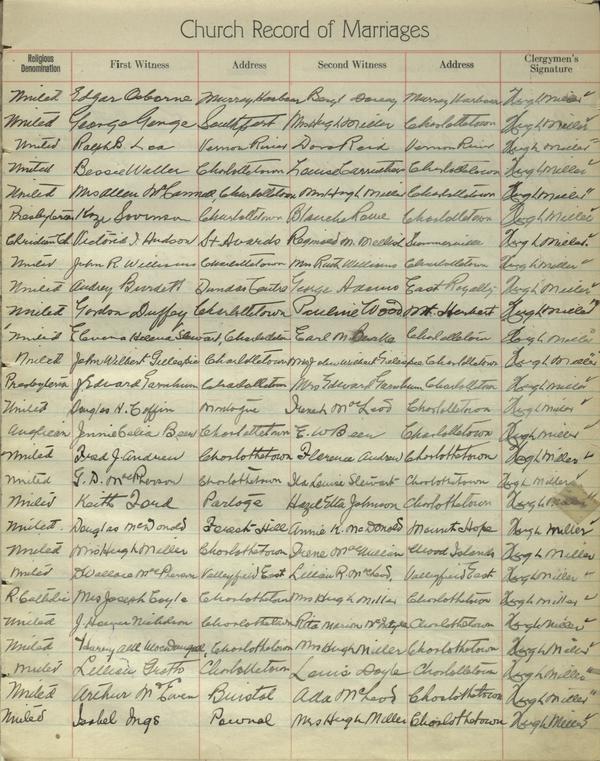 Church Record of Marriages
Religious Denomination First Witness Address Second Witness Address Clergymen's Signature
United Edgar Osborne Murray Harbour Beryl Murray Harbour Hugh Miller
United George Southport Mrs Hugh Miller Charlottetown Hugh Miller
United Ralph B. Lea Vernon River Dora Reid Vernon River Hugh Miller
United Bessie Waller Charlottetown Louise Carruthers Charlottetown Hugh Miller
United Mrs Allen Charlottetown Mrs Hugh Miller Charlottetown Hugh Miller
Presbyterian Sorenson Charlottetown Blanche Rowe Charlottetown Hugh Miller
Christian Ch Victoria J Hudson St Awards Reginald M. Summerville Hugh Miller
United John R Williams Charlottetown Mrs Ruth Williams Charlottetown Hugh Miller
United Audrey Burdett Dundas Centre George Adams East Royalty Hugh Miller
United Gordon Duffey Charlottetown Pauline Wood Mt Herbert Hugh Miller
United Helena Stewart, Charlottetown Earl M Charlottetown Hugh Miller
United John Wilbert Gillespie Charlottetown Mrs John Wilbert Gillespie Charlottetown Hugh Miller
Presbyterian J Edward Farnham Charlottetown Mrs Edward Farnham Charlottetown Hugh Miller
United Douglas H. Coffin Montague Irene McLeod Charlottetown Hugh Miller
Anglican Jennie Celia Beer Charlottetown E. W Beer Charlottetown Hugh Miller
United Fred J. Andrew Charlottetown Florence Andrew Charlottetown Hugh Miller
United G. D. McPherson Charlottetown Ida Louise Stewart Charlottetown Hugh Miller
United Keith Ford Portage Hazel Etta Johnson Charlottetown Hugh Miller
United. Douglas McDonald Forest Hill Annie K. McDonald Mount Hope Hugh Miller
United Mrs Hugh Miller Charlottetown Irene Wood Islands Hugh Miller
United D Wallace McPherson Valleyfield East Lillian R. McLeod, Valleyfield East Hugh Miller
R. Catholic Mrs Joseph Coyle Charlottetown Mrs Hugh Miller Charlottetown Hugh Miller
United J. Nicholson Charlottetown Rita Marion McIntyre Charlottetown Hugh Miller
United Harvey MacDougal, Charlottetown Mrs Hugh Miller Charlottetown Hugh Miller
United Lillian Charlottetown Louis Doyle Charlottetown Hugh Miller
United Arthur McEwen Bristol Ada McLeod Charlottetown Hugh Miller
United Isabel Ings Pownal Mrs Hugh Miller Charlottetown Hugh Miller